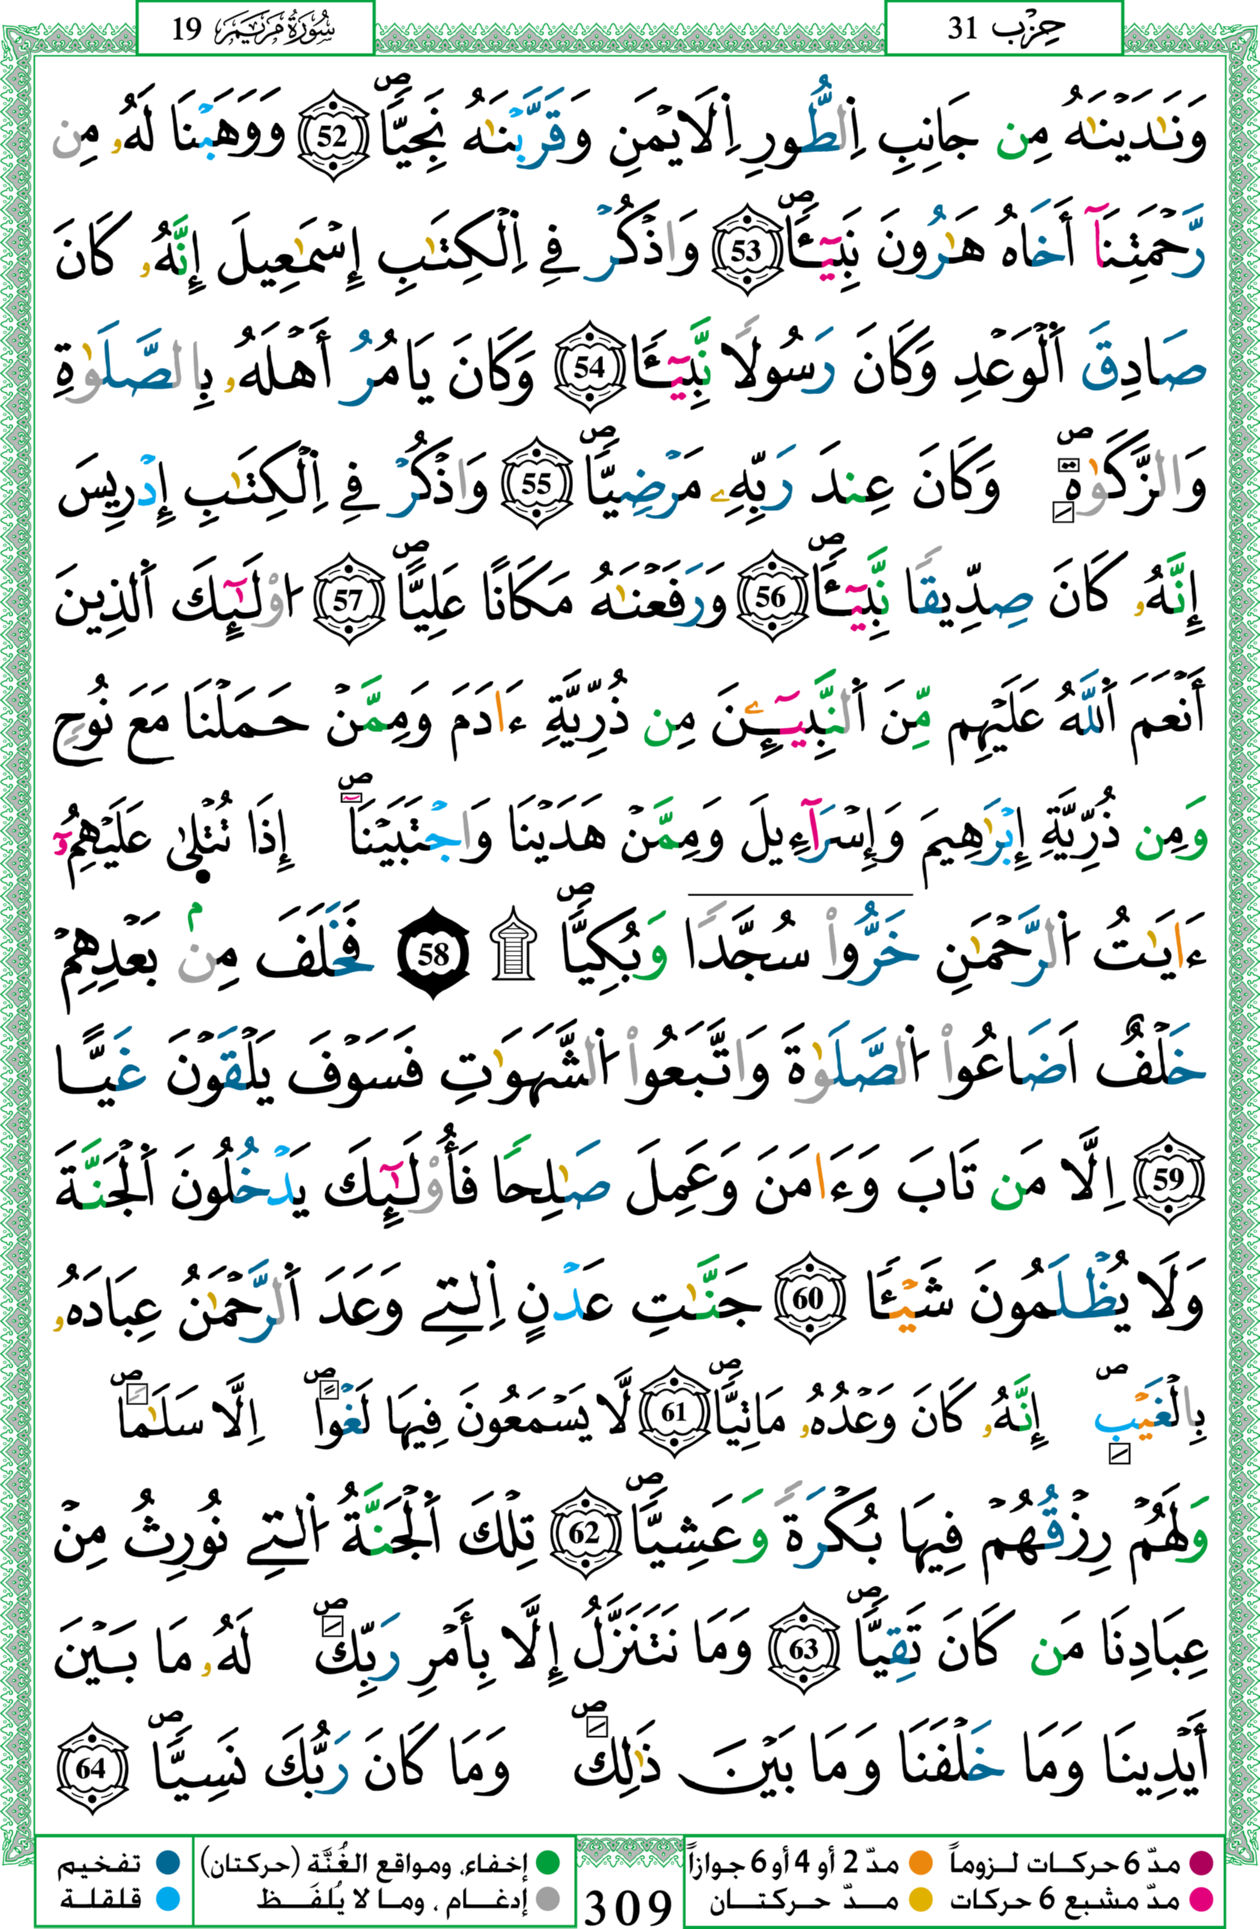 حِزْب 31
سُورَةُ مَرْيَم 19
وَنَٰدَيْنَٰهُ مِن جَانِبِ اِ۬لطُّورِ اِ۬لَايْمَنِ وَقَرَّبْنَٰهُ نَجِيّاٗۖ 52 وَوَهَبْنَا لَهُۥ مِن
رَّحْمَتِنَآ أَخَاهُ هَٰرُونَ نَبِيـٓـٔاٗۖ 53 وَاذْكُرْ فِے اِ۬لْكِتَٰبِ إِسْمَٰعِيلَ إِنَّهُۥ كَانَ
صَادِقَ اَ۬لْوَعْدِ وَكَانَ رَسُولاٗ نَّبِيـٓـٔاٗ 54 وَكَانَ يَامُرُ أَهْلَهُۥ بِالصَّلَوٰةِ
وَالزَّكَوٰةِۖ وَكَانَ عِندَ رَبِّهِۦ مَرْضِيّاٗۖ 55 وَاذْكُرْ فِے اِ۬لْكِتَٰبِ إِدْرِيسَ
إِنَّهُۥ كَانَ صِدِّيقاٗ نَّبِيـٓـٔاٗۖ 56 وَرَفَعْنَٰهُ مَكَاناً عَلِيّاٗۖ 57 ا۟وْلَٰٓئِكَ اَ۬لذِينَ
أَنْعَمَ اَ۬للَّهُ عَلَيْهِم مِّنَ اَ۬لنَّبِيـٓـِٕۧنَ مِن ذُرِّيَّةِ ءَادَمَ وَمِمَّنْ حَمَلْنَا مَعَ نُوحٖ
وَمِن ذُرِّيَّةِ إِبْرَٰهِيمَ وَإِسْرَآءِيلَ وَمِمَّنْ هَدَيْنَا وَاجْتَبَيْنَآۖ إِذَا تُتْل۪يٰ عَلَيْهِمُۥٓ
ءَايَٰتُ اُ۬لرَّحْمَٰنِ خَرُّواْ سُجَّداٗ وَبُكِيّاٗۖ ۩ 58 فَخَلَفَ مِنۢ بَعْدِهِمْ
خَلْفٌ اَضَاعُواْ اُ۬لصَّلَوٰةَ وَاتَّبَعُواْ اُ۬لشَّهَوَٰتِ فَسَوْفَ يَلْقَوْنَ غَيّاً
59 اِلَّا مَن تَابَ وَءَامَنَ وَعَمِلَ صَٰلِحاٗ فَأُوْلَٰٓئِكَ يَدْخُلُونَ اَ۬لْجَنَّةَ
وَلَا يُظْلَمُونَ شَيْـٔاٗ 60 جَنَّٰتِ عَدْنٍ اِ۬لتِے وَعَدَ اَ۬لرَّحْمَٰنُ عِبَادَهُۥ
بِالْغَيْبِۖ إِنَّهُۥ كَانَ وَعْدُهُۥ مَاتِيّاٗۖ 61 لَّا يَسْمَعُونَ فِيهَا لَغْواًۖ اِلَّا سَلَٰماٗۖ
وَلَهُمْ رِزْقُهُمْ فِيهَا بُكْرَةٗ وَعَشِيّاٗۖ 62 تِلْكَ اَ۬لْجَنَّةُ اُ۬لتِے نُورِثُ مِنْ
عِبَادِنَا مَن كَانَ تَقِيّاٗۖ 63 وَمَا نَتَنَزَّلُ إِلَّا بِأَمْرِ رَبِّكَۖ لَهُۥ مَا بَيْنَ
أَيْدِينَا وَمَا خَلْفَنَا وَمَا بَيْنَ ذَٰلِكَۖ وَمَا كَانَ رَبُّكَ نَسِيّاٗۖ 64
مدّ 6 حركات لـزوماً مدّ 2 أو 4 أو 6 جوازاً
مدّ مشبع 6 حركات مـدّ حـركـتـان
إخفاء، ومواقع الغُنَّة (حركتان) تفخيم
إدغـام ، ومـا لا يُلفَـظ قلقلة
309